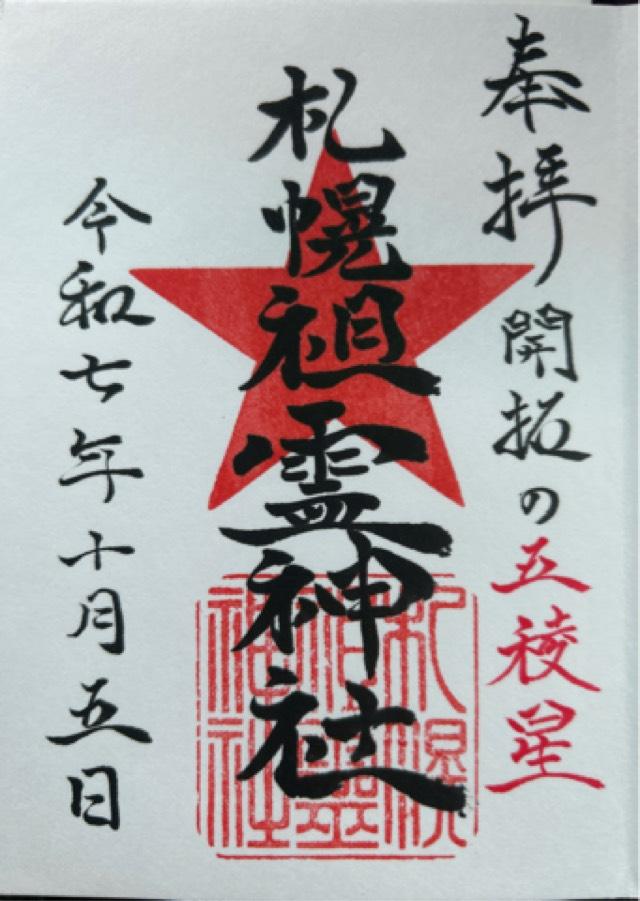 奉拝 開拓の五稜星
札幌祖霊神社
札幌祖霊神社
令和七年十月五日